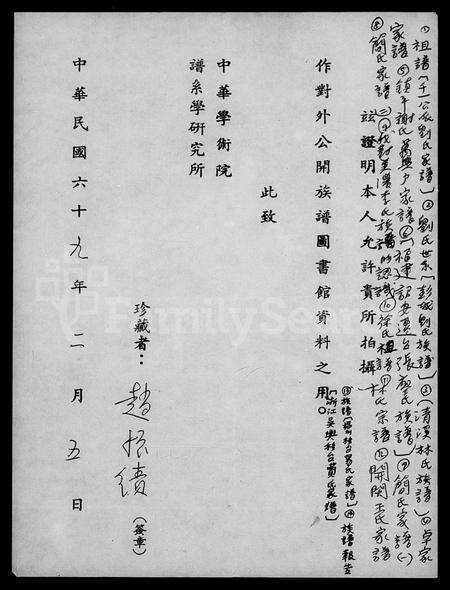 ①祖譜[千一公派劉氏家譜]②劉氏世系[彭城劉氏族譜]③[清溪林氏族譜]④卓家
家譜⑤鎮平謝氏萬興戶家譜⑥[福建詔安遷台張廖氏族譜]⑦簡氏家譜(一)
⑧簡氏家譜(二)⑨我對東漢李氏族譜的認識⑩徐氏祖譜⑪林氏宗譜⑫開閩王氏家譜
茲證明本人允許貴所拍攝
⑬族譜[ 台 氏家譜]⑭族譜報告
[浙江吳興 台 氏家譜]
作對外公開族譜圖書館資料之用。
此致
中華學術院
譜系學研究所
珍藏者：趙振績(簽章)
中華民國六十九年二月五日
FamilySearch